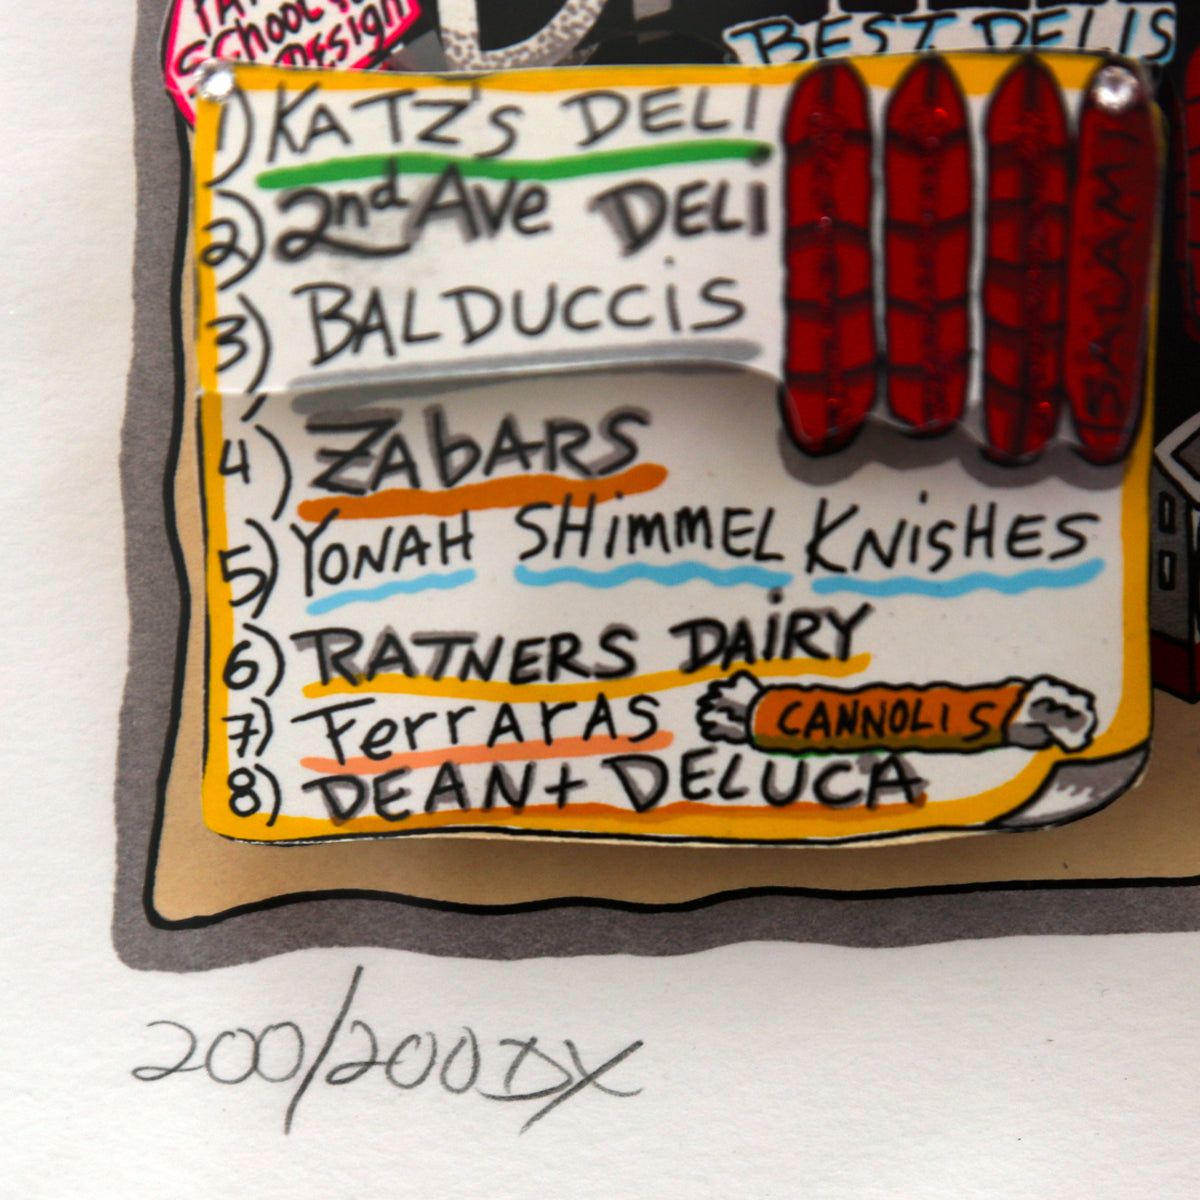 School
Design
BEST DELIS
1) KATZ'S DELI
2) 2nd Ave DELi
3) BALDUCCiS
SALAMI
4) ZAbARS
5) YONAH SHimmEL KNiSHES
6) RATNERS DAiRY
7) FerrArAS
CANNOLIS
8) DEAN + DELUCA
200/200 DX